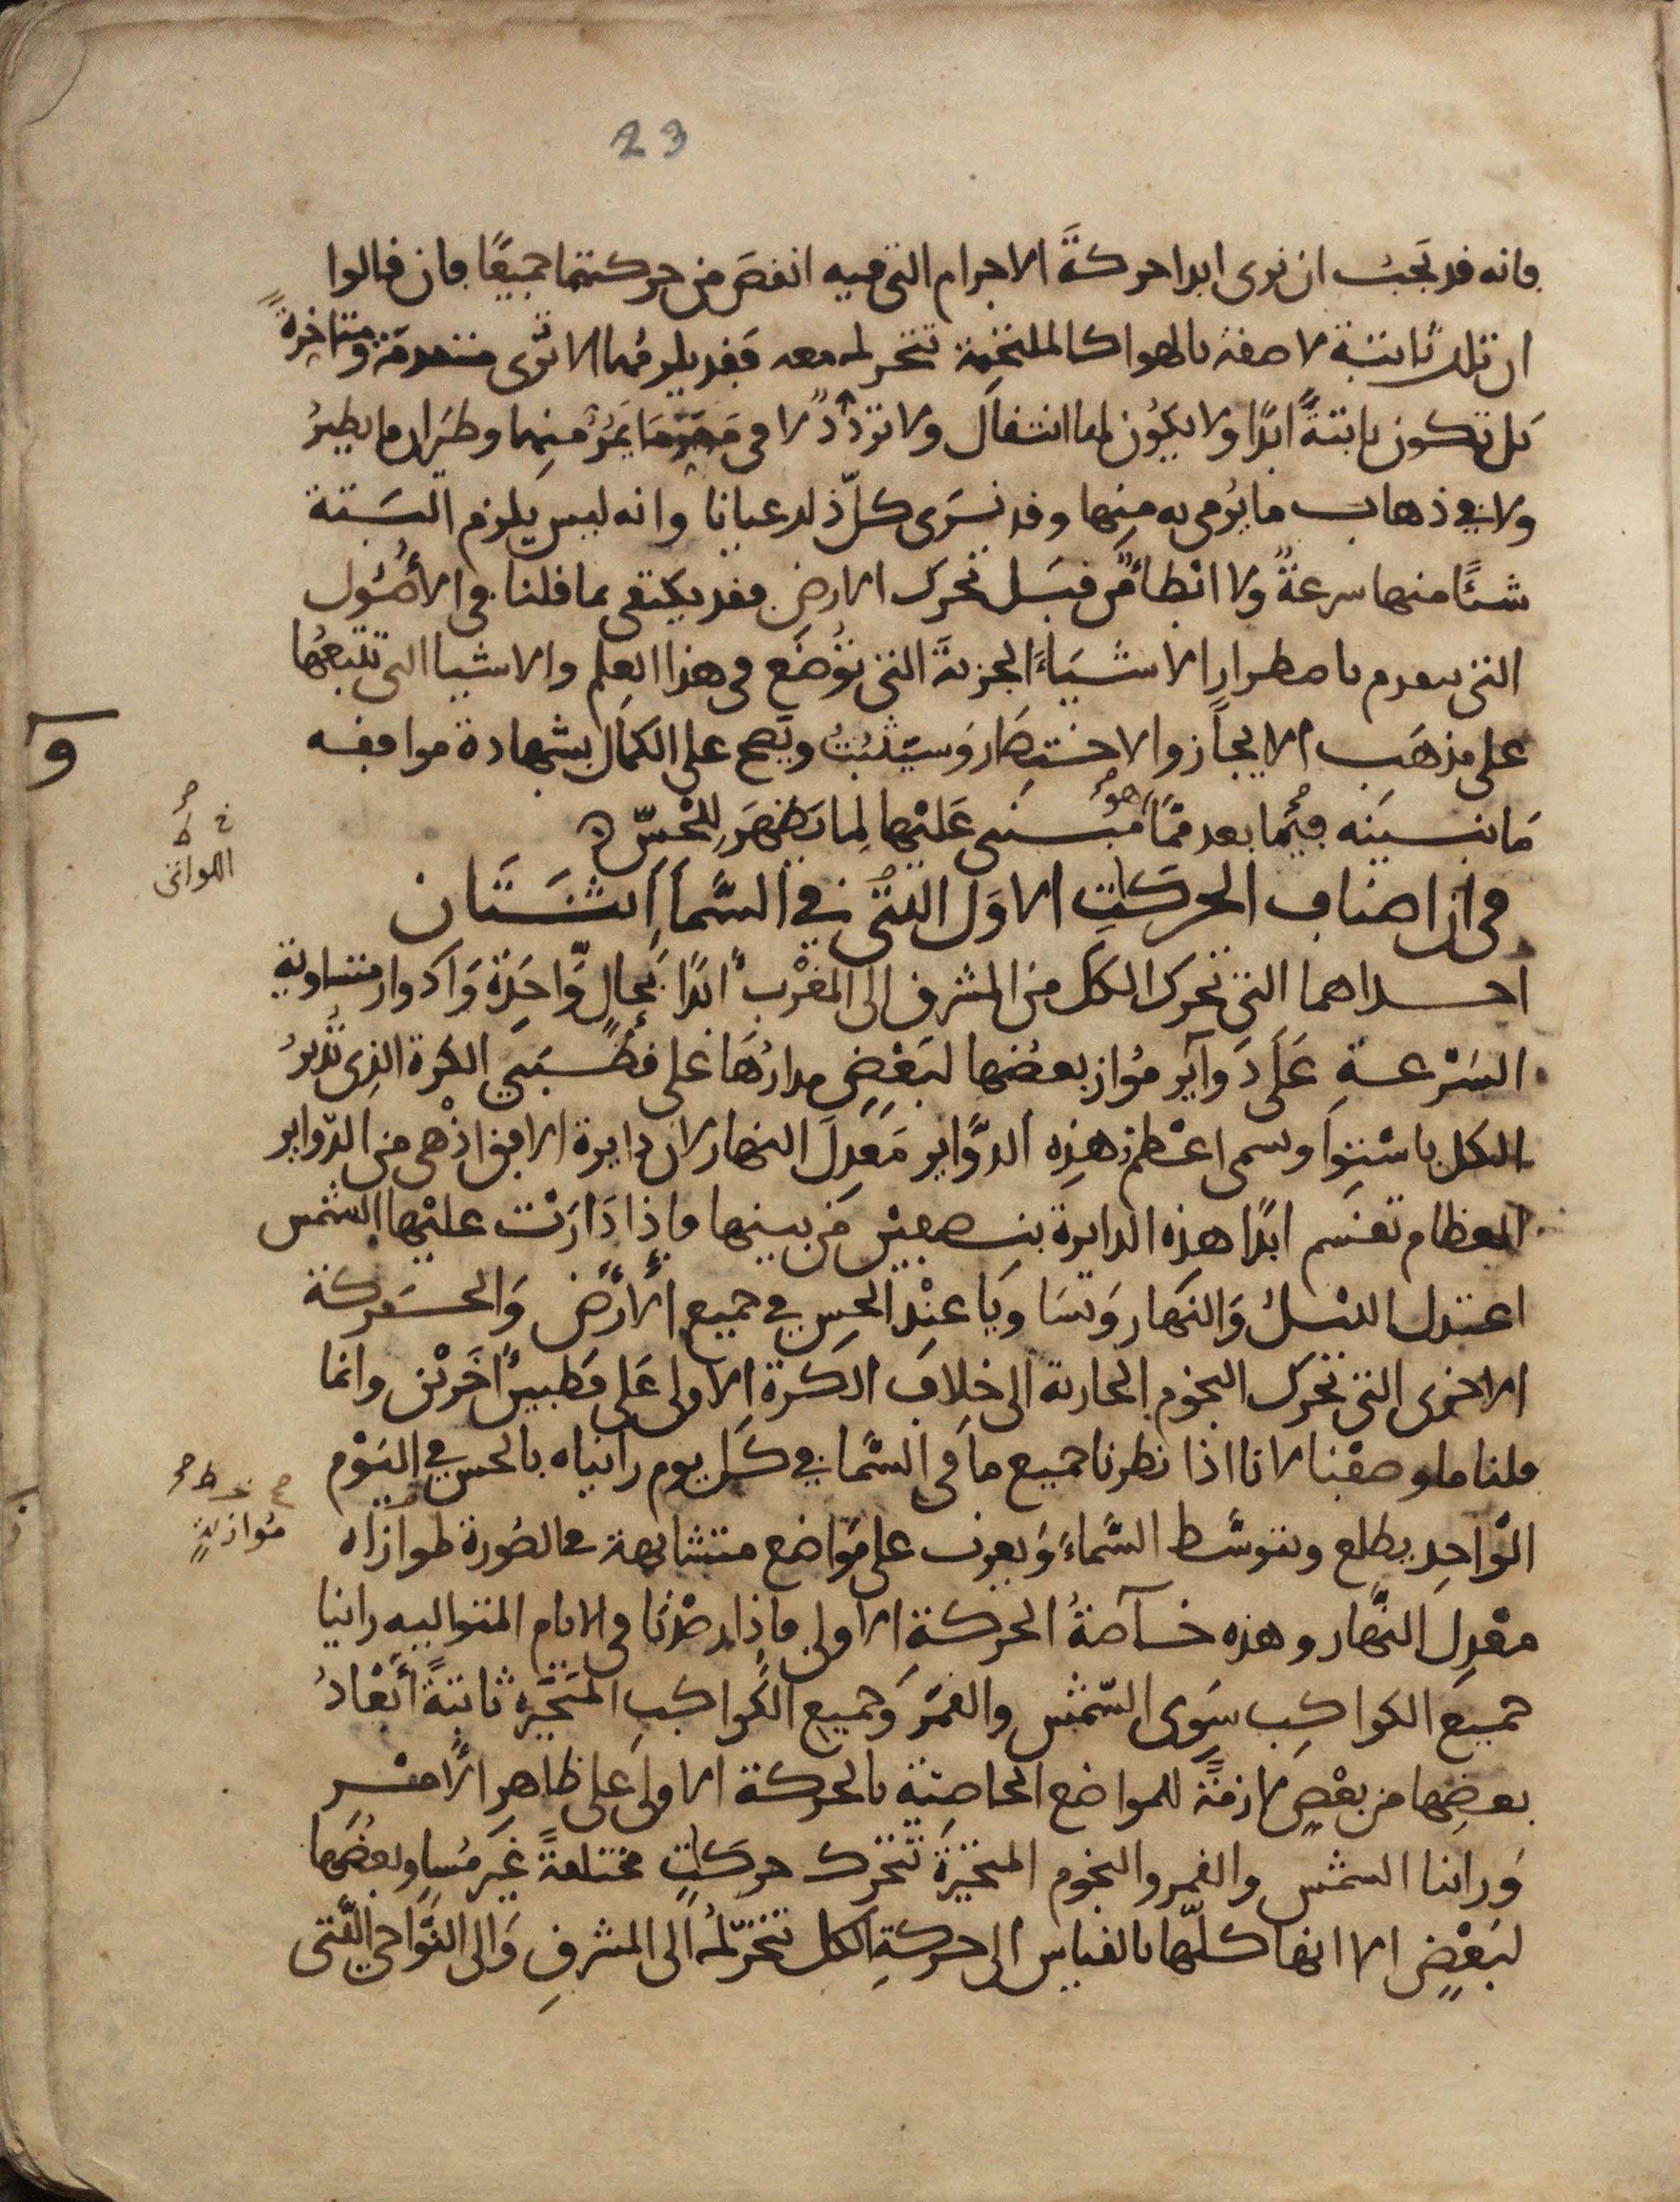 23
فانه قد يجب ان نرى ابدا حركة الاجرام التى فيه انقص من حركتهما جميعًا فان قالوا
ان تلك ثابتة لاصقة بالهوا كالملتحمة تتحرك معه فقد يلزمها الا تُرى متقدمة ومتاخرةً
بل تكون ثابتةً ابدًا ولا يكون لها انتقال ولا تردّد لا فى ممر ما يَمُرّ منها وطيران ما يطيرُ
ولا فى ذهاب ما يُرمى به منها وقد نَرى كلّ ذلك عيانا وانه ليس يلزم البتة
شئًا منها سرعةٌ ولا ابطاءٌ من قبل تحرك الارض فقد يكتفى بما قلنا فى الأصُول
التى تتقدم باضطرار الاشيَاءَ الجزئيةَ التى تُوضَع فى هذا العلم والاشيا التى تتبعُها
على مذهَب الايجاز والاختصَار وَسيَثبُتُ ويَصح على الكمال بشهادة موافقه
مَا نبينه فيما بعد ممّا هو مبنى عَليْها لِما يَظهَر للحْسّ
فى ان اصناف الحرَكاتِ الاوَل التى فى السّمَآ اثنتَان
احداهما التى تحرك الكل من المشرق الى المغْرب ابدًا بحالٍ وَّاحِدَة وَادوار متساوية
السّرْعَةِ عَلَى دَوآير مُوازٍ بعضُها لبَعْضٍ مدارُهَا على قطبَي الكرة الذى تُدِيرُ
الكل باسْتوَا وسمى اعْظم هذِه الدوَّاير مَعَدِلَ النهار لان دايرة الافق اذْ هى من الدّواير
العظام تقسم ابدًا هذه الدايرة بنصفين من بينها فاِذا دَارَتْ عليْها الشمس
اعتدل الليلُ وَالنهار وَتسَا ويَا عنْد الحِس في جميع الأرْض وَالحَركة
الاخرى التى تحرك النجوم الجارية الى خلاف الكرة الاولى عَلى قطبين اخَرَيْن وانما
قلنا ما وصفْنا لانا اذا نظرنا جميع ما فى السَّما في كل يوم رايناه بالحس في اليَوْم
الوَاحِد يطلع ويتوسَّط السَّماءَ وَيغرب على مَوَاضع متشابهة فى الصُورة مُوازاه
معْدِلَ النَّهار وهذه خآصةُ الحركة الاولى فاذا رصَدْنا فى الايام المتواليه راينا
جميع الكواكِب سِوى الشّمْس والقمَر وَجميع الكَواكِبِ المتحَيّره ثابتةً أبْعَادُ
بعضِها من بعْضٍ لازمَةً للمواضع الخاصيّة بالحركة الاولى على ظاهِرِ الامْرِ
وَراينا الشمْس والقمر والنجوم المتحَيّرة تتحَرك حركاتٍ مختلفةً غَيرَ مُساوٍ بعضُها
لبَعْضٍ الا انها كلّها بالقياس الى حركةِ الكل تتحرّك الى المشرقِ وَالى النَّواحي التى
و
اللواتى
مُوازيةٍ